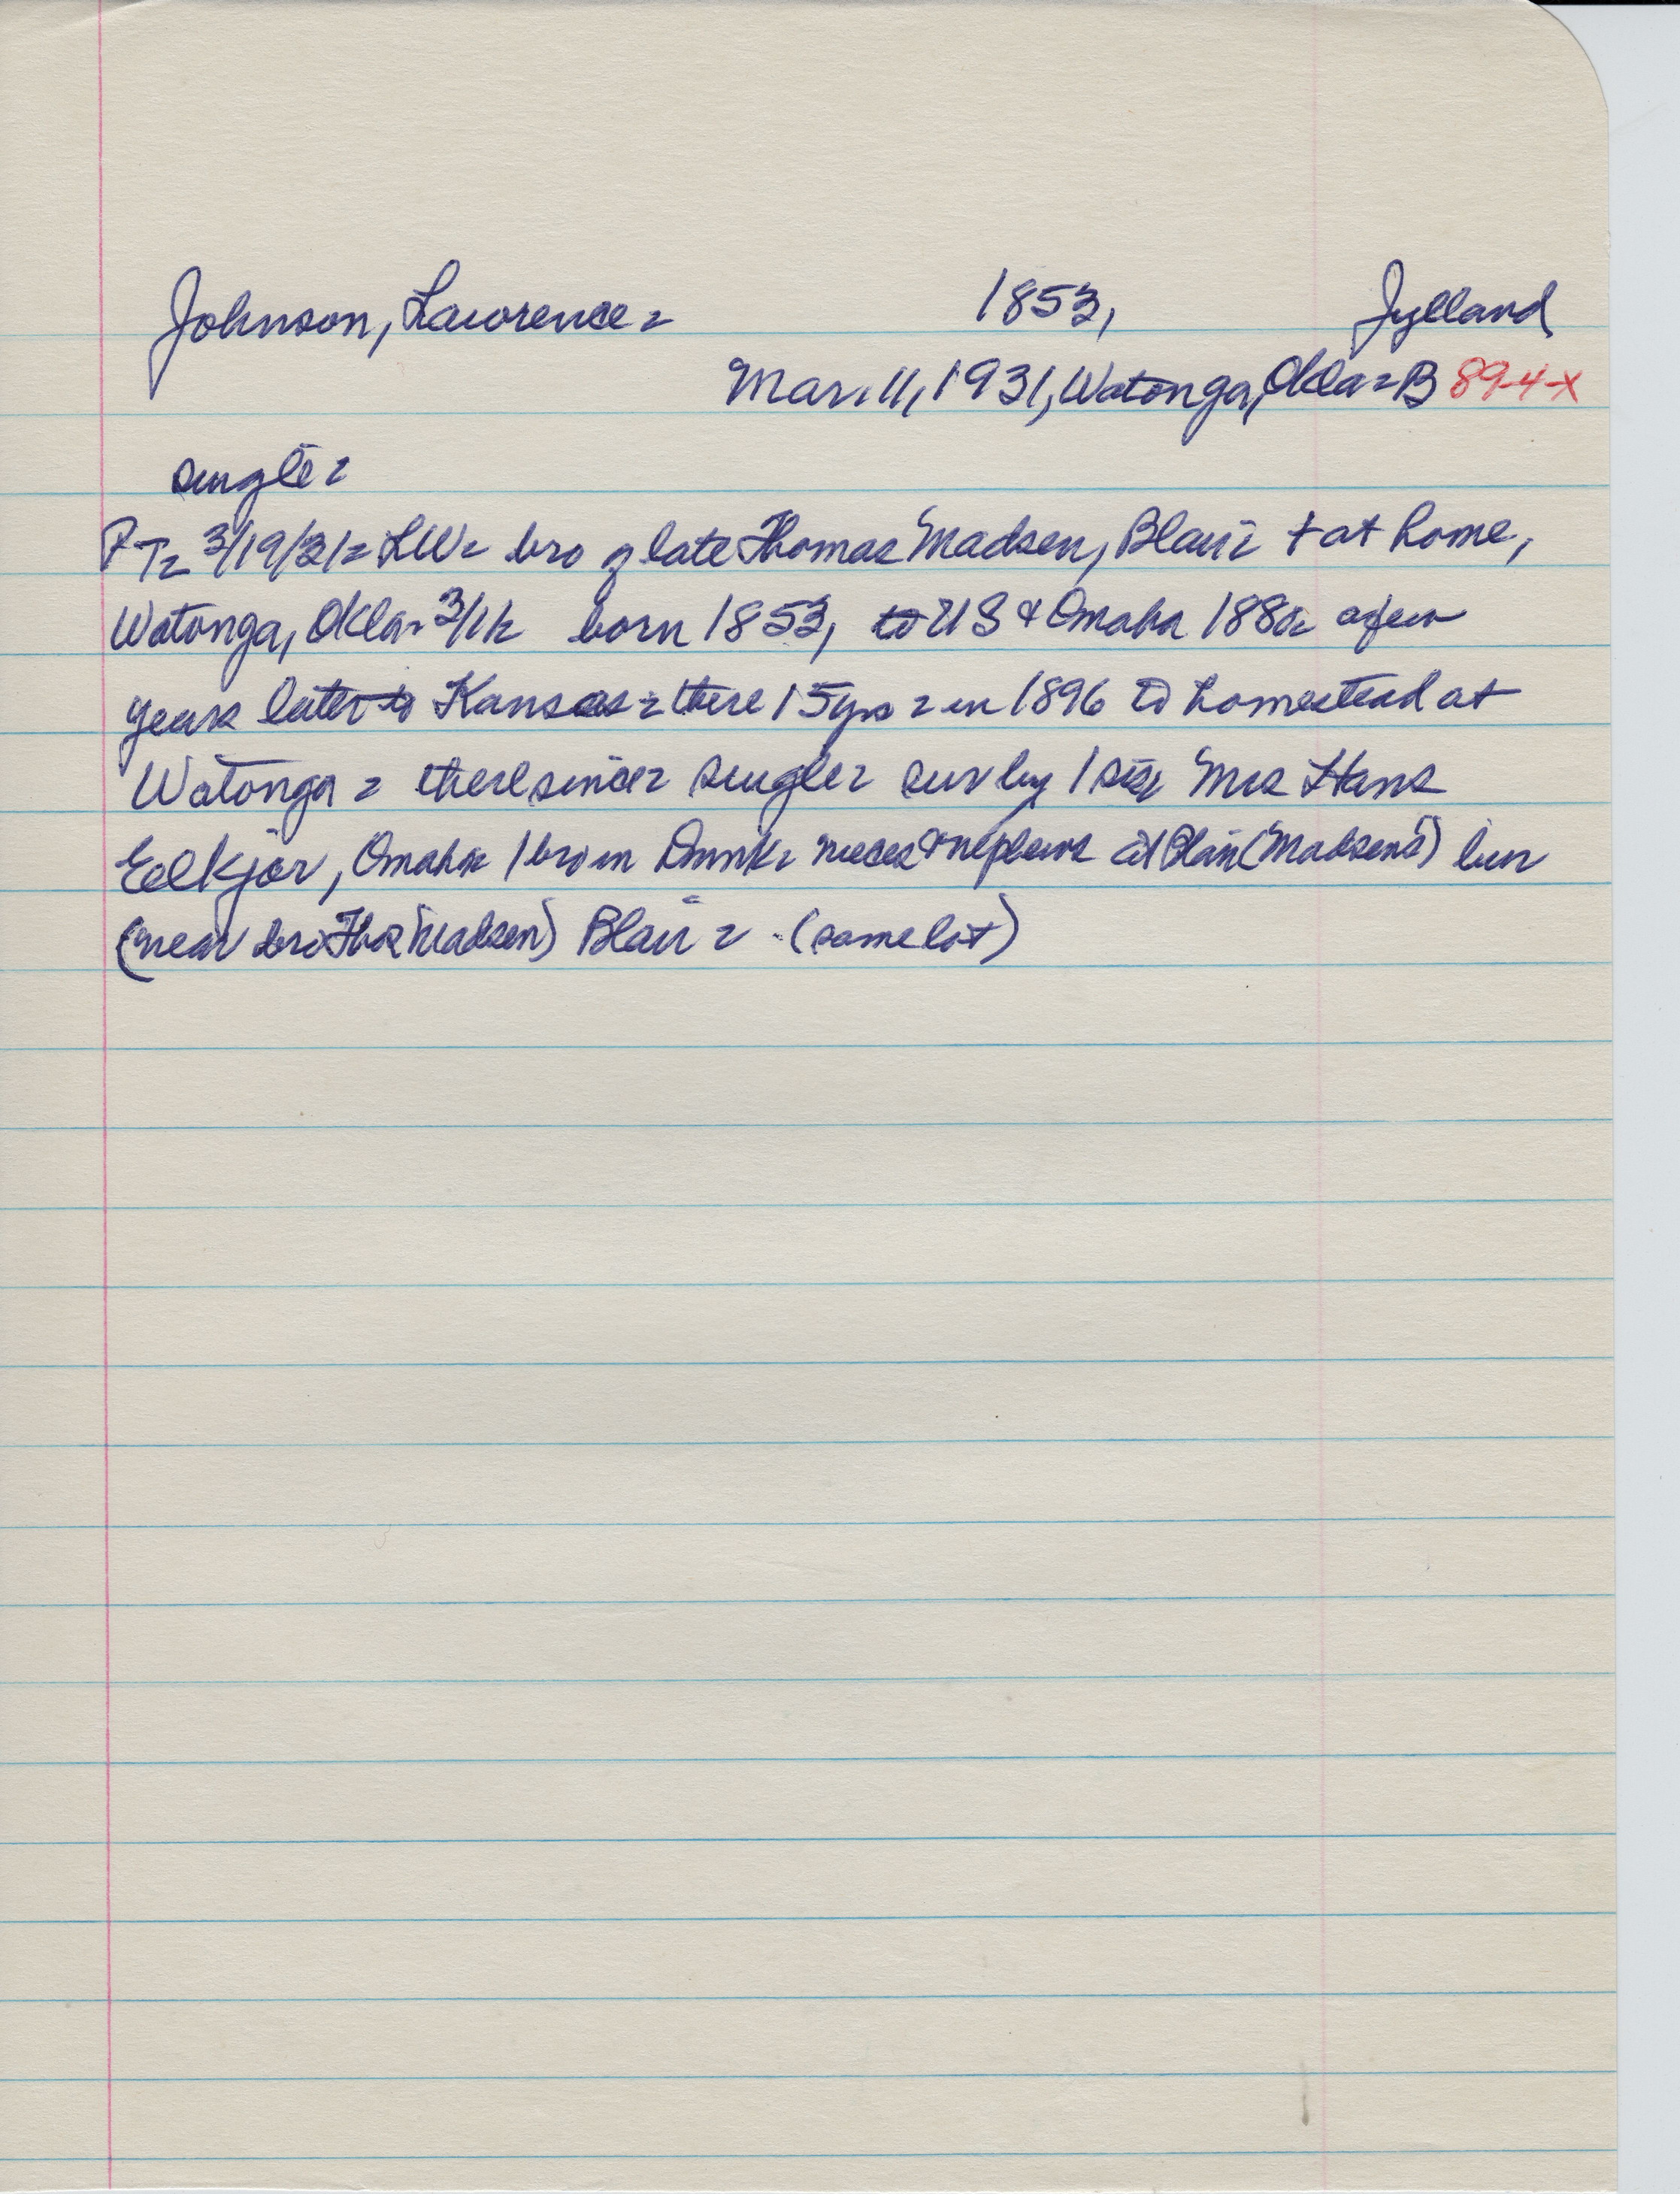 Johnson, Lawrence = 1853, Jylland
Mar. 11, 1931, Watonga, Okla = B 89-4-X
single =
PT= 3/19/31= LW= bro of late Thomas Madsen, Blair = + at home,
Watonga, Okla = 3/11= born 1853, to US & Omaha 188 a few
years later to Kansas = there 15 yrs = in 1896 to homestead at
Watonga = there since = single = surv by 1 sis Mrs Hans
Eelkjar, Omaha 1 bro in Dnmk = nieces & nephews at Blair (Madsens) bur
(near bro Thos Madsen) Blair = (same lot)